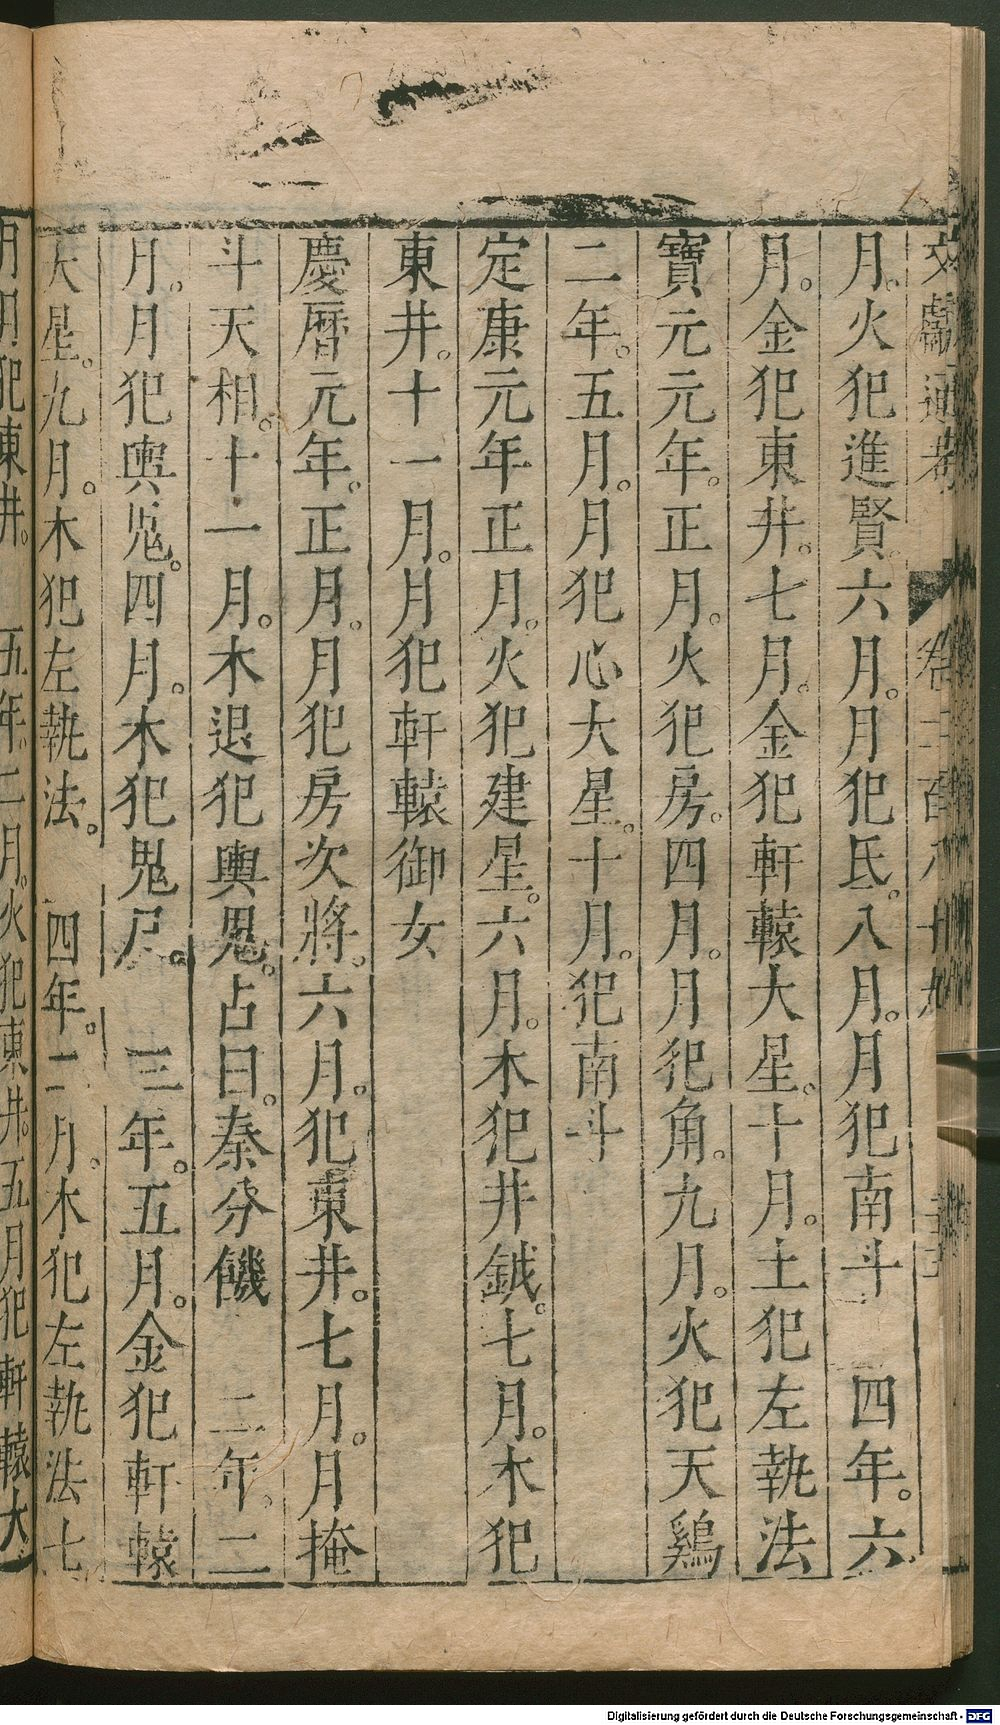 文獻通考 卷二百八十九
月。火犯進賢。六月。月犯氐。八月。月犯南斗 四年。六
月。金犯東井。七月。金犯軒轅大星。十月。土犯左執法
寶元元年。正月。火犯房。四月。月犯角。九月。火犯天鷄
二年。五月。月犯心大星。十月。犯南斗
定康元年正月。火犯建星。六月。木犯井鉞。七月。木犯
東井。十一月。月犯軒轅御女
慶曆元年。正月。月犯房次將。六月。犯東井。七月。月掩
斗天相。十一月。木退犯輿鬼。占曰。秦分饑 二年。二
月。月犯輿鬼。四月。木犯鬼尸。 三年。五月。金犯軒轅
大星。九月。木犯左執法。 四年。二月。木犯左執法七
月月犯東井。 五年。二月。火犯東井。五月犯軒轅大
Digitalisierung gefördert durch die Deutsche Forschungsgemeinschaft - DFG